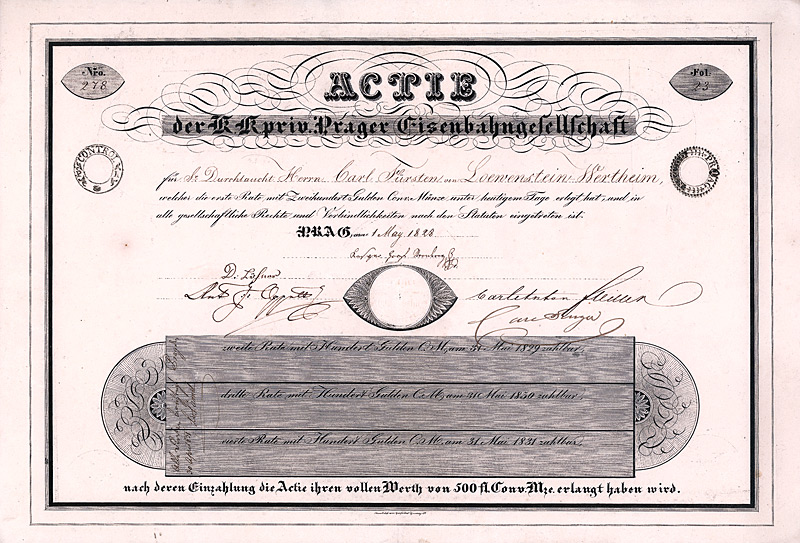 Nro. 278
Fol. 23
ACTIE
der K K priv. Prager Eisenbahngesellschaft
CONTROLL
PRAG
für Sr. Durchlaucht Herrn Carl Fürsten von Loewenstein-Wertheim,
welcher die erste Rate mit Zweihundert Gulden Conv. Münze unter heutigem Tage erlegt hat, und in
alle gesellschaftliche Rechte und Verbindlichkeiten nach den Statuten eingetreten ist.
PRAG, am 1 May 1828
zweite Rate mit Hundert Gulden C.M. am 31 Mai 1829 zahlbar,
dritte Rate mit Hundert Gulden C.M. am 31 Mai 1830 zahlbar,
vierte Rate mit Hundert Gulden C.M. am 31 Mai 1831 zahlbar,
nach deren Einzahlung die Actie ihren vollen Werth von 500 fl. Conv. Mze. erlangt haben wird.